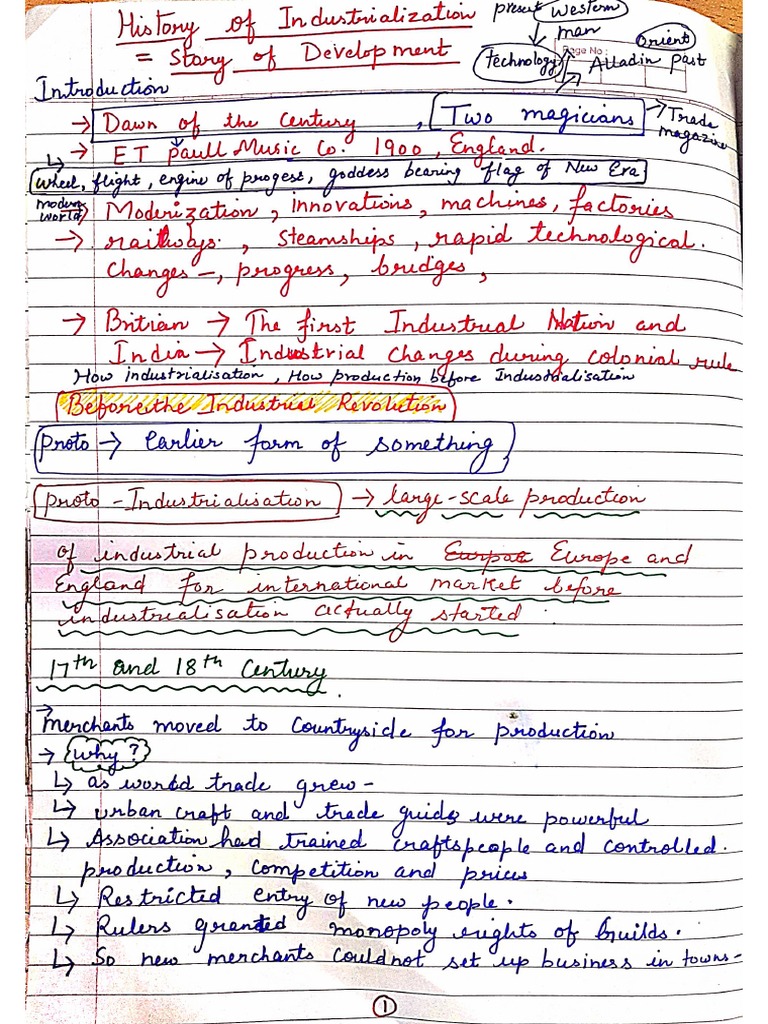 History of Industrialization
= Story of Development
present western
man
technology
Page No:
Orient
Alladin past
Introduction
→ Dawn of the Century, Two magicians → Trade magazine
→ ET Paull Music Co. 1900, England.
wheel, flight, engine of progess, goddess bearing flag of New Era
modern world
→ Moderization, innovations, machines, factories
→ railways., steamships, rapid technological.
Changes -, progress, bridges,
→ Britian → The first Industrial Nation and
India → Industrial Changes during colonial rule
How industrialisation, How production before Industrialisation
Before the Industrial Revolution
Proto → Earlier form of something
Proto-Industrialisation → large-scale production
of industrial production in Europe and
England for international market before
industrialisation actually started.
17th and 18th Century.
→ Merchants moved to Countryside for production
→ Why?
↳ as world trade grew-
↳ urban craft and trade guids were powerful
↳ Association had trained craftspeople and controlled.
production, competition and prices
↳ Restricted entry of new people.
↳ Rulers granted monopoly rights of Guilds.
↳ So new merchants could not set up business in towns-
1